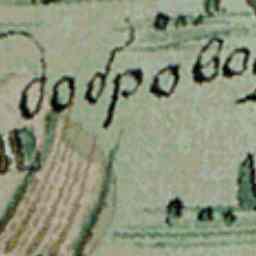 доброво